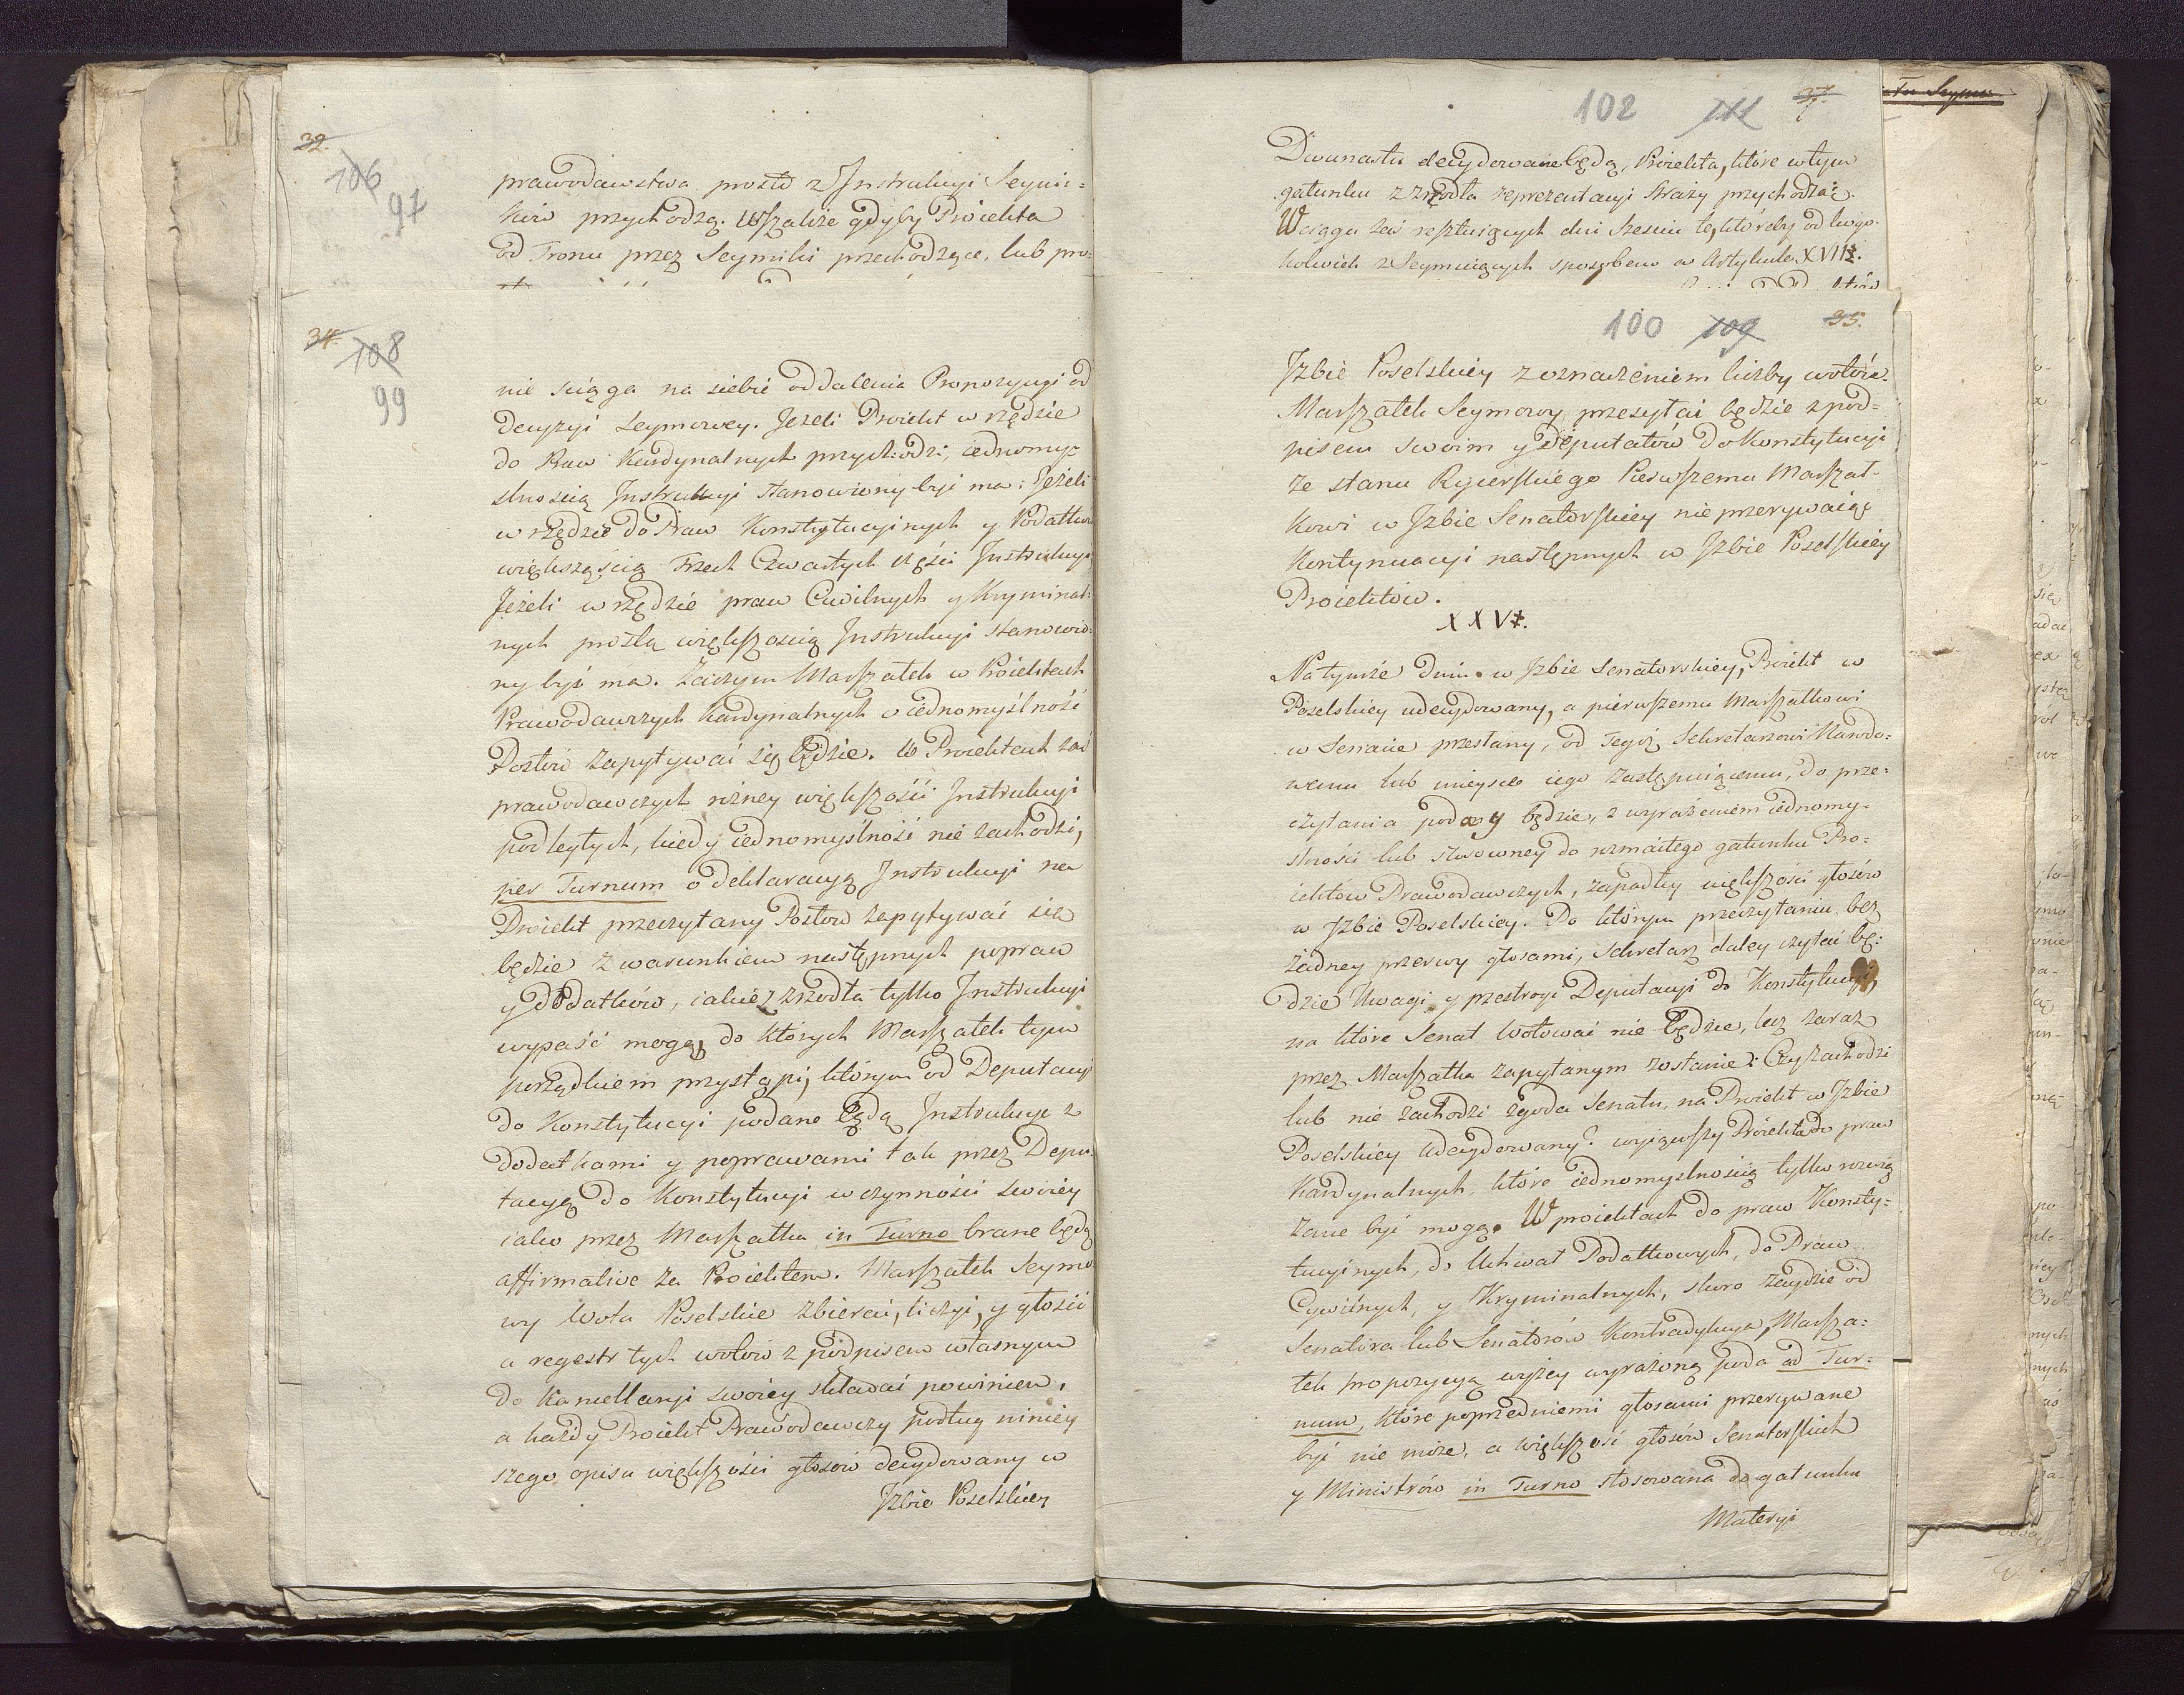 32.
106
97
prawodawstwa prosto z Instrukcyi Seymi-
ków przychodzą. Wszakże gdyby Proiekta
od Tronu przez Seymiki przechodzące, lub pro-
34.
108
99
nie sciąga na siebie oddalenia Propozycyi od
decyzyi Seymowey. Jeżeli Proiekt w rzędzie
do Praw Kardynalnych przychodzi, iednomy-
slnoscią Instrukcyi stanowiony byi ma: Jeżeli
w rzędzie do Praw Konstytucyinych y Podatkow
większością Trzech Czwartych części Instrukcyi
Jeżeli w rzędzie praw Cuwilnych y Kryminal-
nych prostą większoscią Instrukcyi stanowio-
ny byi ma. Zaczym Marszałek w Proiektach
Prawodawczych Kardynalnych o iednomyślność
Posłów zapytywać się będzie. W Proiektach zaś
prawodawczych rożney większości Instrukcyi
podległych, kiedy iednomyślność nie zachodzi,
per Turnum o deklaracyą Instrukcyi na
Proiekt przeczytany Posłow zapytywać się
będzie z warunkiem następnych popraw
y dodatków, iakie z zrzodła tylko Instrukcyi
wypaść mogą, do których Marszałek tym
porządkiem przystąpi, którym od Deputacyi
do Konstytucyi podane będą Instrukcye z
dodatkami y poprawami tak przez Depu-
tacyą do Konstytucyi w czynności swoiey
iako przez Marszałka in Turno brane będą
affirmative za Proiektem. Marszałek Seymo
wy Wota Poselskie zbierać, liczyć, y głosić
a regestr tych wotów z podpisem własnym
do Kancellaryi swoiey składać powinien,
a każdy Proiekt Prawodawczy podług niniey
szego opisu większości głosów decydowany w
Izbie Poselskiey
102 111 37.
Dwunastu decydowane będą, Proiekta, które w tym
gatunku z zrzodła reprezentacyi Straży przychodzą.
W ciągu zaś resztuiących dni Szesciu te, któreby od kogo-
kolwiek z Seymuiących sposobem w Artykule XVII.
100 109 35.
Izbie Poselskiey z oznaczeniem liczby wotów.
Marszałek Seymowy przesyłać będzie z pod-
pisem swoim y Deputatów do Konstytucyi
ze stanu Rycerskiego Pierwszemu Marszał-
kowi w Izbie Senatorskiey nieprzerywaiąc
Kontynuacyi następnych w Izbie Poselskiey
Proiektów.
XXV.
Na tymże dniu w Izbie Senatorskiey, Proiekt w
Poselskiey udecydowany, a pierwszemu Marszałkowi
w Senacie przesłany, od tegoż Sekretarzowi Narodo-
wemu lub mieysce iego zastępuiącemu, do prze-
czytania podany będzie, z wyrażeniem iednomy-
slności lub stosowney do rozmaitego gatunku Pro-
iektów Prawodawczych, zapadłey większości głosów
w Izbie Poselskiey. Po którym przeczytaniu bez
żadney przerwy głosami, Sekretarz daley czytać bę-
dzie Uwagi y przestrogi Deputacyi do Konstytucyi,
na które Senat Wotować nie będzie, lecz zaraz
przez Marszałka zapytanym zostanie: Czy zachodzi
lub nie zachodzi zgoda Senatu, na Proiekt w Izbie
Poselskiey udecydowany? wyiąwszy Proiekta do praw
Kardynalnych, które iednomyslnością tylko rozwią
zane być mogą. W proiektach do praw Konsty-
tucyinych, do Uchwał Podatkowych, do Praw
Cywilnych, y Kryminalnych, skoro zaydzie od
Senatora lub Senatorów Kontradykcya, Marsza-
łek propozycyą wyżey wyrażoną poda ad Tur-
num, które poprzedniemi głosami przerywane
być nie może, a większość głosów Senatorskich
y Ministrów in Turno stosowana do gatunku
Materyi